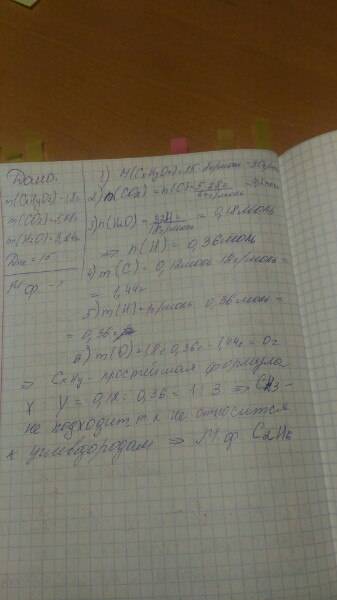 Дано:
m(CxHyOz)=1,8г
m(CO2)=5,28г
m(H2O)=3,24г
Dн2 = 15
М.ф. - ?
1) M(CxHyOz)=15·2г/моль=30г/моль
2) n(CO2) = n(C) = 5,28г / 44г/моль = 0,12моль
3) n(H2O) = 3,24г / 18г/моль = 0,18моль
⇒ n(H) = 0,36моль
4) m(C) = 0,12моль·12г/моль =
= 1,44г
5) m(H)=1г/моль·0,36моль=
= 0,36г
6) m(O)=1,8г-0,36г-1,44г=0г
⇒ CxHy - простейшая формула
X : Y = 0,12 : 0,36 = 1:3 ⇒ CH3 -
не подходит т.к не относится
к углеводородам ⇒ М.ф C2H6